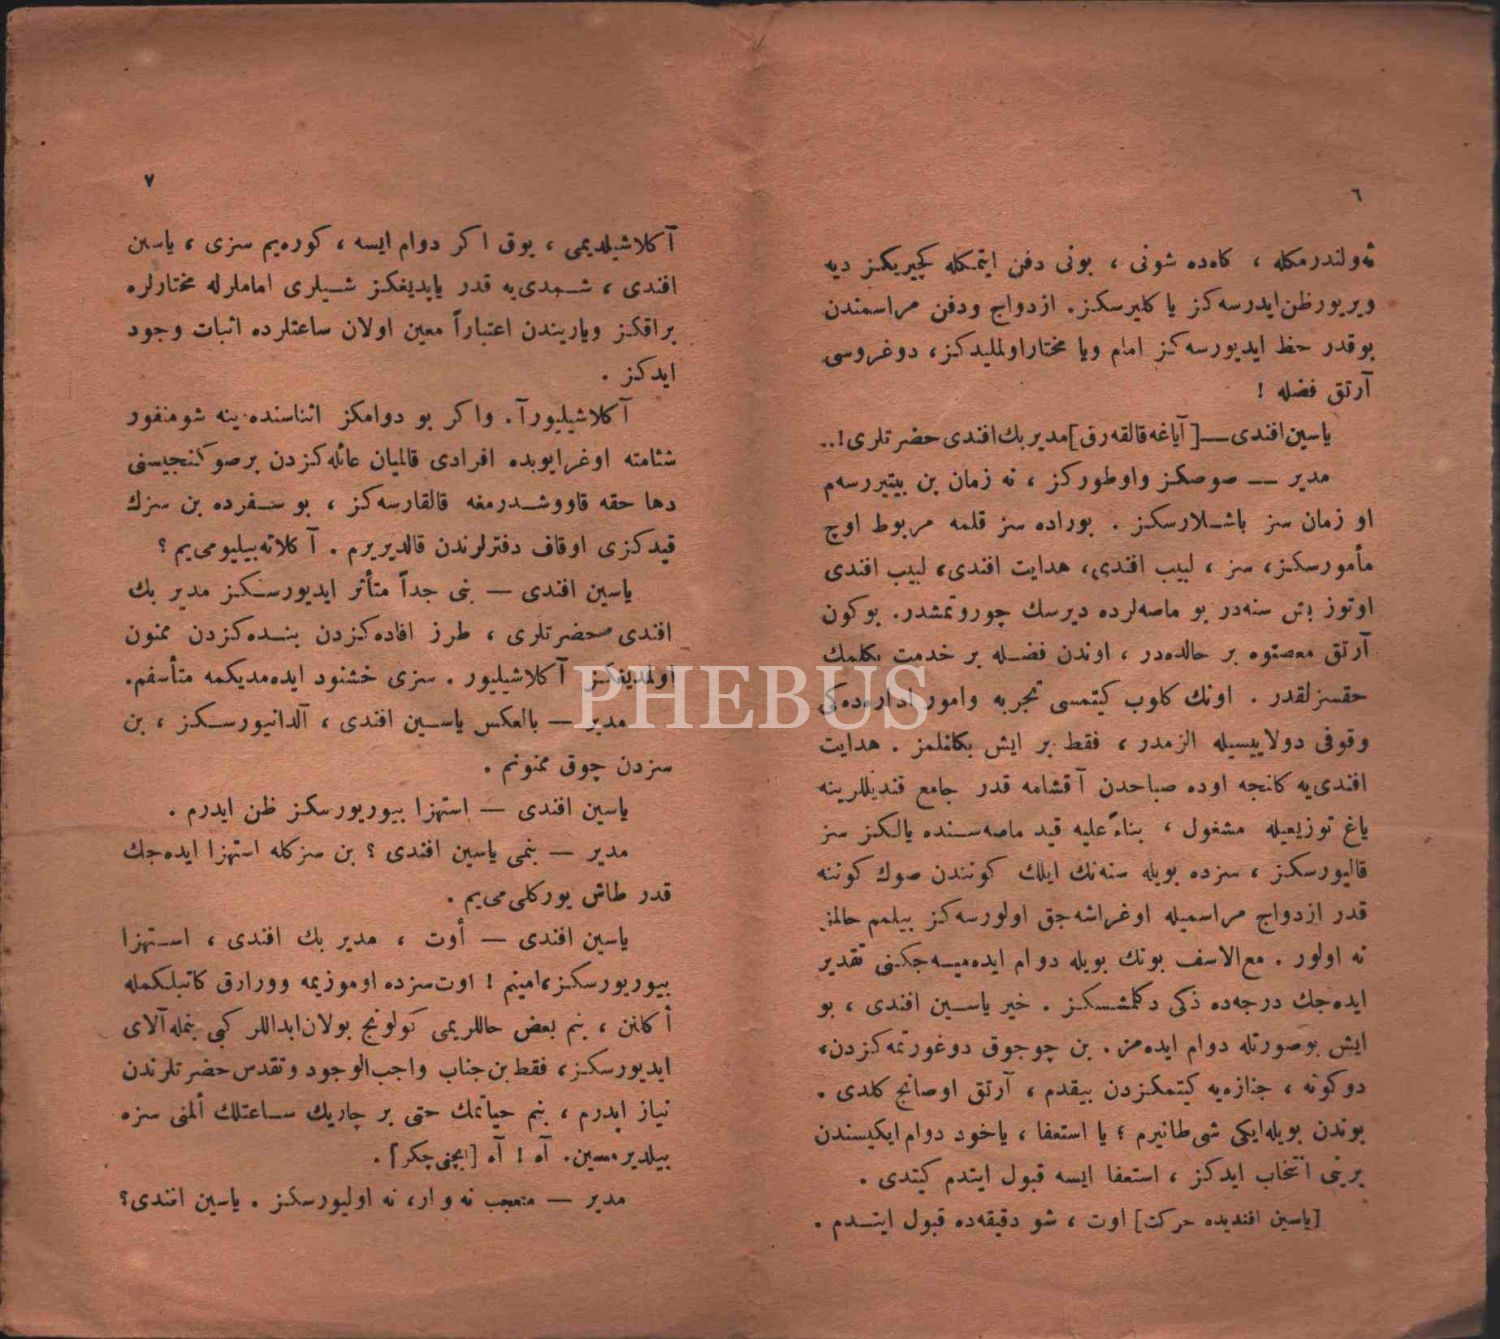 ٦
ئه‌ولندرمكله ، كاه‌ده شونی ، بونی دفن ایتمكله كچیریكز دیه
ویریور ظن ایدرسه‌كز یا كلیرسكز. ازدواج ودفن مراسمندن
بوقدر حظ ایدیورسه‌كز امام ویا مختار اولملیدكز، دوغروسی
آرتق فضله !
یاسین افندی — [آیاغه قالقه‌رق] مدیر بك افندی حضرتلری !..
مدیر — صوصكز واوطوركز ، نه زمان بن بیتیررسه‌م
او زمان سز باشلارسكز . بوراده سز قلمه مربوط اوچ
مأمورسكز، سز ، لبیب افندی، هدایت افندی، لبیب افندی
اوتوز بش سنه‌در بو ماصه‌لرده دیرسك چوروتمشدر. بوكون
آرتق معتوه بر حالده‌در ، اوندن فضله بر خدمت بكلمك
حقسزلقدر . اونك كلوب كیتمسی تجربه وامور اداره‌ده‌كی
وقوفی دولاییسیله الزمدر ، فقط بر ایش بكلنلمز . هدایت
افندی‌یه كلنجه اوده صباحدن آقشامه قدر جامع قندیللرینه
یاغ توزیعیله مشغول ، بناءً علیه قید ماصه‌سنده یالكز سز
قالیورسكز ، سزده بویله سنه‌نك ایلك كونندن صوك كوننه
قدر ازدواج مراسمیله اوغراشه‌جق اولورسه‌كز بیلمم حالمز
نه اولور . مع‌الاسف بونك بویله دوام ایده‌میه‌جكنی تقدیر
ایده‌جك درجه‌ده ذكی دكلمشسكز . خیر یاسین افندی ، بو
ایش بوصورتله دوام ایده‌مز . بن چوجوق دوغورتمه‌كزدن،
دوكونه ، جنازه‌یه كیتمكزدن بیقدم ، آرتق اوصانج كلدی .
بوندن بویله ایكی شی طانیرم ؛ یا استعفا ، یاخود دوام ایكیسندن
برینی انتخاب ایدكز ، استعفا ایسه قبول ایتدم كیتدی .
[یاسین افندیده حركت] اوت ، شو دقیقه‌ده قبول ایتدم .
٧
آكلاشیلدیمی ، یوق اكر دوام ایسه ، كوره‌یم سزی ، یاسین
افندی ، شمدی‌یه قدر یاپدیغكز شیلری اماملرله مختارلره
براقكز ویاریندن اعتباراً معین اولان ساعتلرده اثبات وجود
ایدكز .
آكلاشیلیورآ. واكر بو دوامكز اثناسنده ینه شومنفور
شئامته اوغرایوبده افرادی قالمیان عائله‌كزدن برصوكنجیسنی
دها حقه قاووشدرمغه قالقارسه‌كز ، بو سفرده بن سزك
قیدكزی اوقاف دفترلرندن قالدیریرم . آكلاته‌بیلیومی‌یم ؟
یاسین افندی — بنی جداً متأثر ایدیورسكز مدیر بك
افندی حضرتلری ، طرز افاده‌كزدن بنده‌كزدن ممنون
اولمدیغكز آكلاشیلیور . سزی خشنود ایده‌مدیكمه متأسفم.
مدیر — بالعكس یاسین افندی ، آلدانیورسكز ، بن
سزدن چوق ممنونم .
یاسین افندی — استهزا بیوریورسكز ظن ایدرم .
مدیر — بنمی یاسین افندی ؟ بن سزكله استهزا ایده‌جك
قدر طاش یوركلی می‌یم .
یاسین افندی — أوت ، مدیر بك افندی ، استهزا
بیوریورسكز، امینم ! اوت سزده اوموزیمه ووراوق كاتبلكمله
أكلنن ، بنم بعض حاللریمی كولونج بولان ابداللر كبی بنمله آلای
ایدیورسكز، فقط بن جناب واجب‌الوجود وتقدس حضرتلرندن
نیاز ایدرم ، بنم حیاتمك حتی بر چاریك ساعتلك ألمنی سزه
بیلدیرمسین. آه ! آه [ایچنی چكر] .
مدیر — متعجب نه وار، نه اولیورسكز . یاسین افندی؟